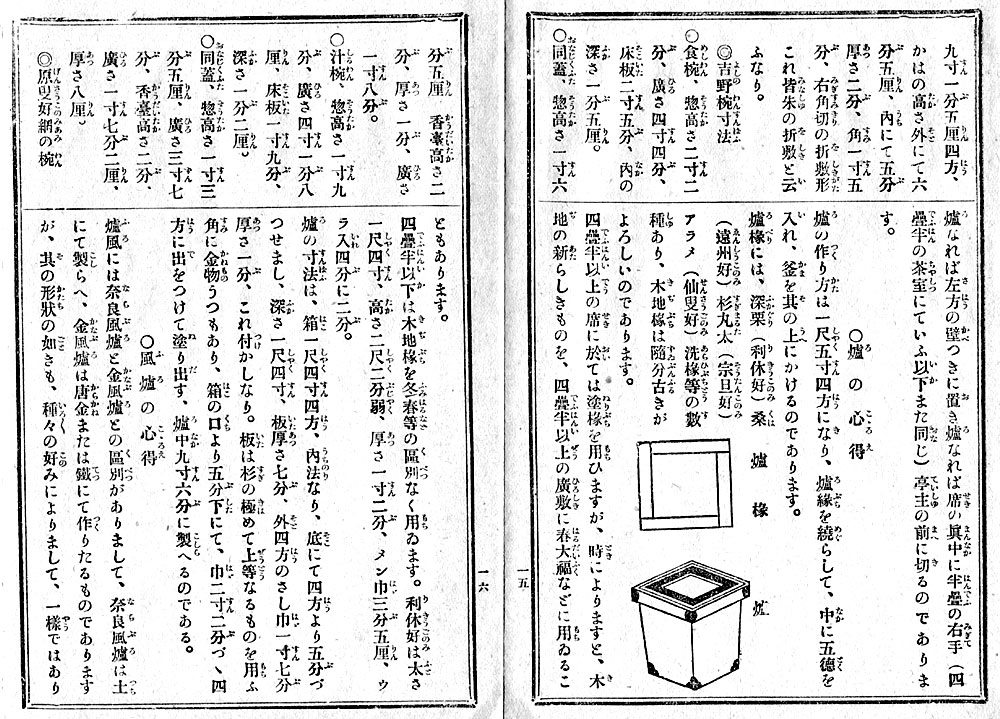 九寸一分五厘四方、
かはの高さ外にて六
分五厘、內にて五分
厚さ二分、角一寸五
分、右角切の折敷形
これ皆朱の折敷と云
ふなり。
◎吉野椀寸法
○食椀、惣高さ二寸二
分、廣さ四寸四分、
床板二寸五分、內の
深さ一分五厘。
○同蓋、惣高さ一寸六
爐なれば左方の壁つきに置き爐なれば席の眞中に半疊の右手(四
疊半の茶室にていふ以下また同じ)亭主の前に切るのでありま
す。
○爐の心得
爐の作り方は一尺五寸四方になり、爐緣を繞らして、中に五德を
入れ、釜を其の上にかけるのであります。
爐椽には、深栗(利休好)桑
(遠州好)杉丸太(宗旦好)
アラメ(仙叟好)洗椽等の數
種あり、木地椽は隨分古きが
よろしいのであります。
爐椽
爐
四疊半以上の席に於ては塗椽を用ひますが、時によりますと、木
地の新らしきものを、四疊半以上の廣敷に春大福などに用ゐるこ
一五
分五厘 香臺高さ二
分、厚さ一分、廣さ
一寸八分。
○汁椀、惣高さ一寸九
分、廣さ四寸一分八
厘、床板一寸九分、
深さ一分二厘。
○同蓋、惣高さ一寸三
分五厘、廣さ三寸七
分、香臺高さ二分、
廣さ一寸七分二厘、
厚さ八厘。
◎原叟好網の椀
ともあります。
四疊半以下は木地椽を冬春等の區別なく用ゐます。利休好は太さ
一尺四寸、高さ二尺二分弱、厚さ一寸二分、メン巾三分五厘、ウ
ラ入四分に二分。
爐の寸法は、箱一尺四寸四方、內法なり、底にて四方より五分づ
つせまし、深さ一尺四寸、板厚さ七分、外四方のさし巾一寸七分
厚さ一分、これ付かしなり。板は杉の極めて上等なるものを用ふ
角に金物うつもあり、箱の口より五分下にて、巾二寸二分づゝ四
方に出をつけて塗り出す、爐中九寸六分に製へるのである。
○風爐の心得
爐風には奈良風爐と金風爐との區別がありまして、奈良風爐は土
にて製らへ、金風爐は唐金または鐵にて作りたるものであります
が、其の形狀の如きも、種々の好みによりまして、一樣ではあり
一六